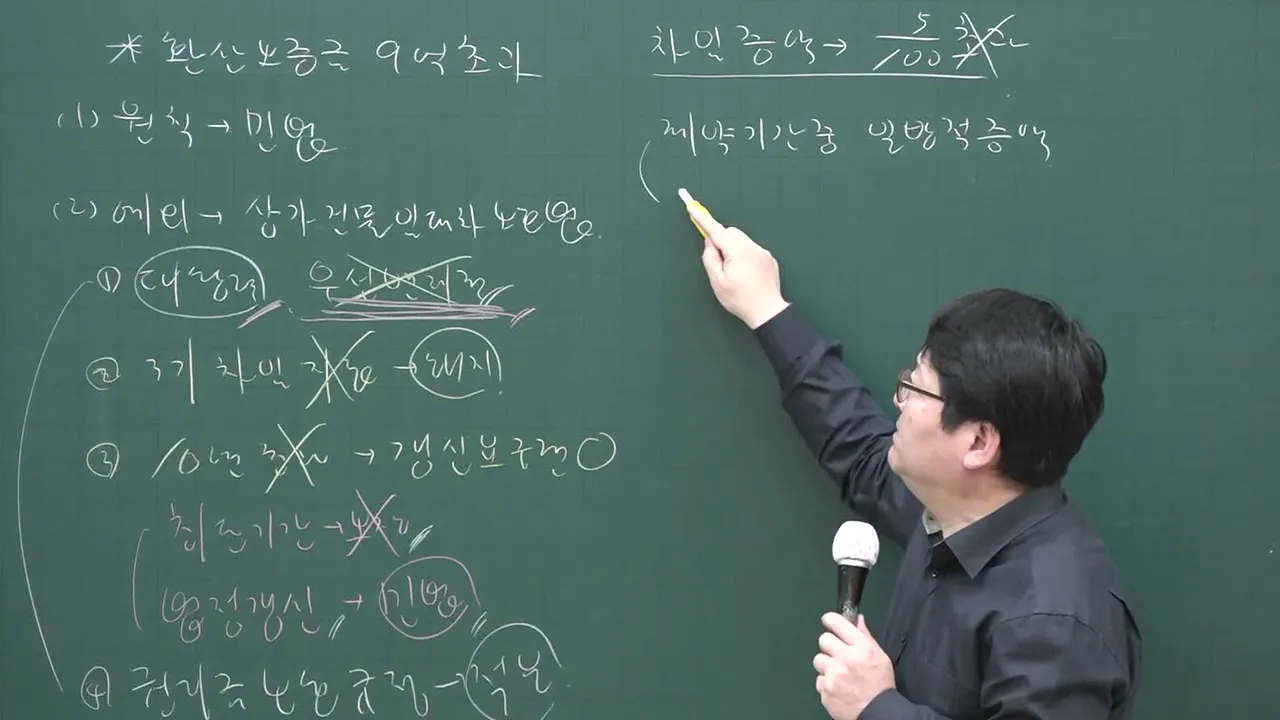 * 환산보증금 9억초과
(1) 원칙 → 민법
(2) 예외 → 상가건물임대차보호법.
① 대항력 우선변제권
② 3기 차임 지급 → 해지
③ 10년 초과 → 갱신요구권 ○
최단기간 →
법정갱신 → 민법
④ 권리금 보호 규정 → 적용
차임증액 → 5/100 초과
계약기간중 일방적증액